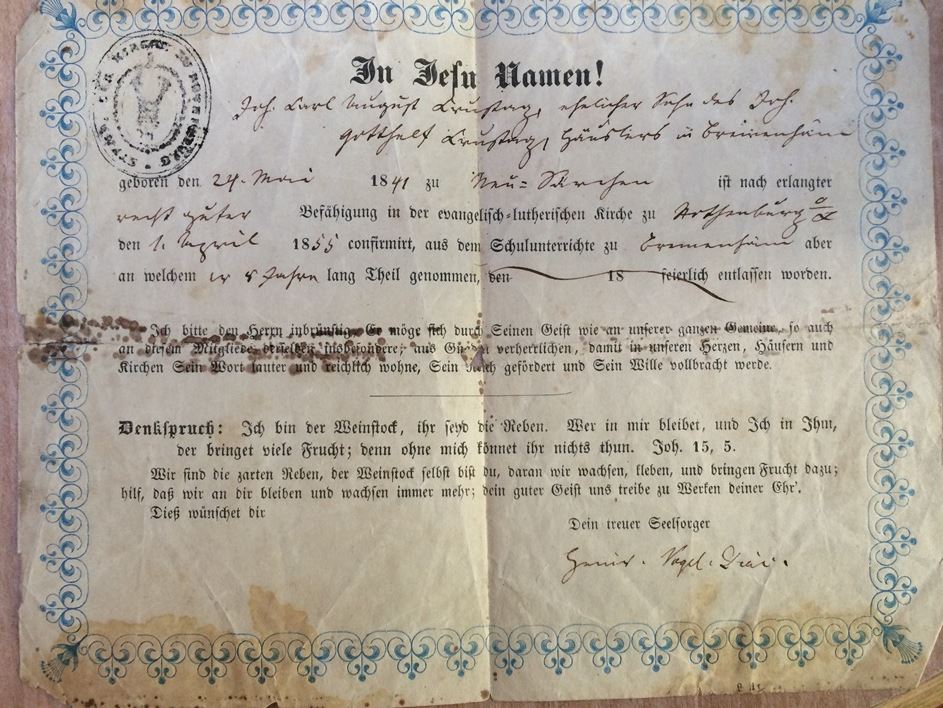 In Jesu Namen!
Joh. Carl August Crustag, ehelicher Sohn des Joh.
Gotthelf Crustag, Häuslers in Bremenhain
geboren den 24. Mai 1841 zu Neu-Särchen ist nach erlangter
recht guter Befähigung in der evangelisch-lutherischen Kirche zu Rothenburg
den 1. April 1855 confirmirt, aus dem Schulunterrichte zu Bremenhain aber
an welchem er 8 Jahre lang Theil genommen, den 18 feierlich entlassen worden.
Ich bitte den Herrn inbrünstig, Er möge sich durch Seinen Geist wie an unserer ganzen Gemeine, so auch
an diesem Mitgliede derselben insbesondere, aus Gnaden verherrlichen, damit in unseren Herzen, Häusern und
Kirchen Sein Wort lauter und reichlich wohne, Sein Reich gefördert und Sein Wille vollbracht werde.
Denkspruch: Ich bin der Weinstock, ihr seyd die Reben. Wer in mir bleibet, und Ich in Ihm,
der bringet viele Frucht; denn ohne mich könnet ihr nichts thun. Joh. 15, 5.
Wir sind die zarten Reben, der Weinstock selbst bist du, daran wir wachsen, kleben, und bringen Frucht dazu;
hilf, daß wir an dir bleiben und wachsen immer mehr; dein guter Geist uns treibe zu Werken deiner Ehr'.
Dieß wünschet dir
Dein treuer Seelsorger
Vogel